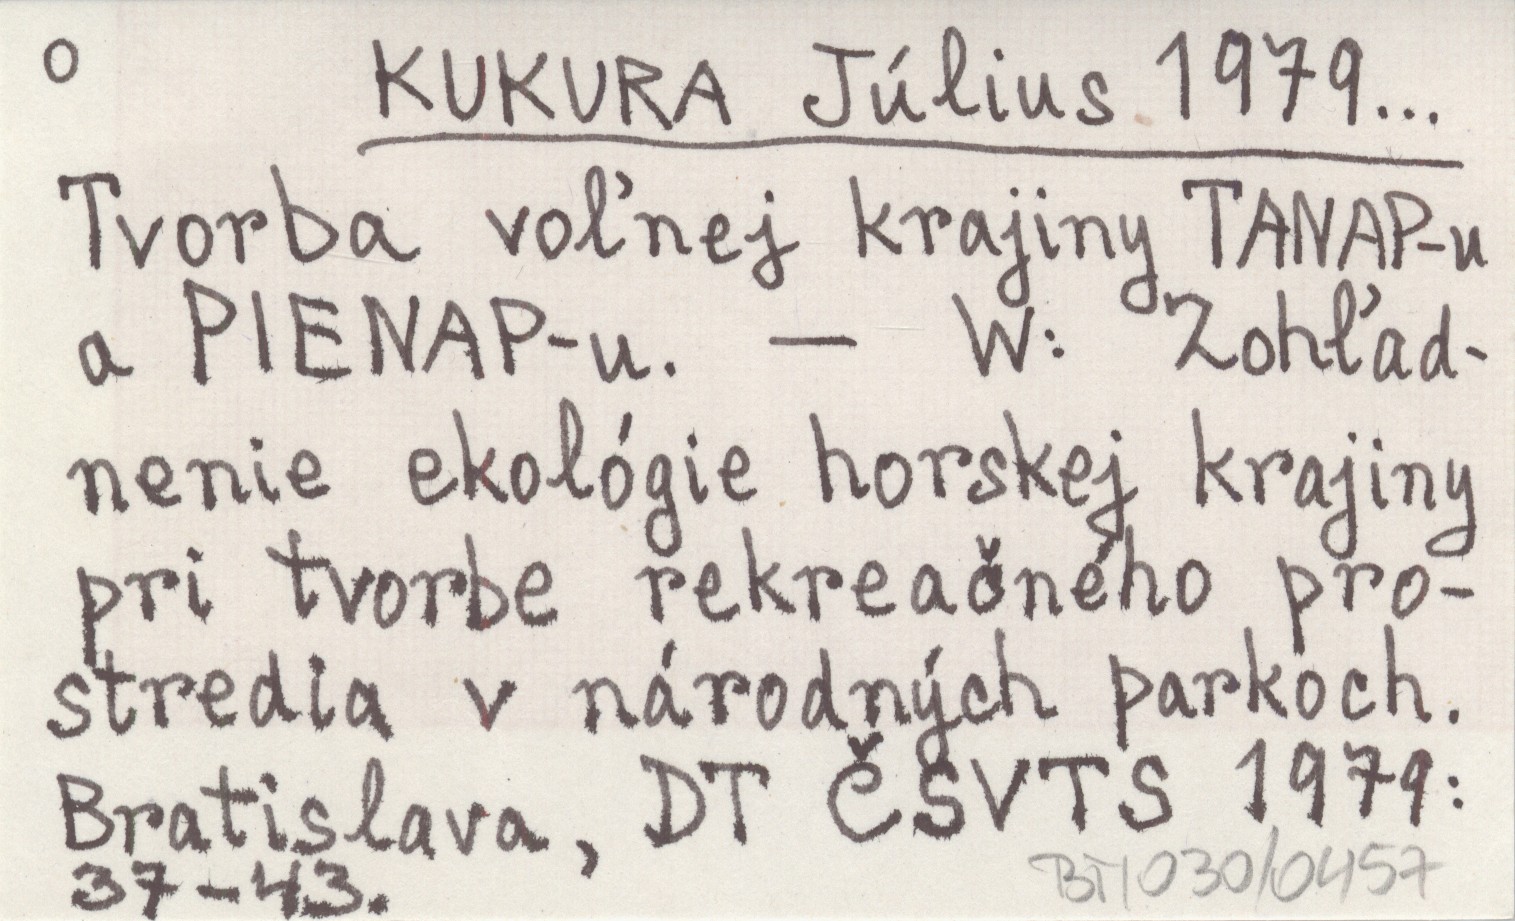 o KUKURA Július 1979...
Tvorba voľnej krajiny TANAP-u
a PIENAP-u. — W: Zohľad-
nenie ekológie horskej krajiny
pri tvorbe rekreačného pro-
stredia v národných parkoch.
Bratislava, DT ČSVTS 1979:
37-43.
BT/030/0457